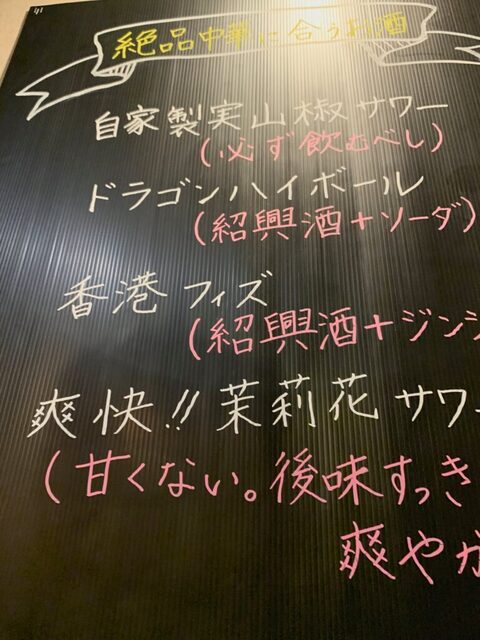 絶品中華に合うお酒
自家製実山椒サワー
(必ず飲むべし)
ドラゴンハイボール
(紹興酒+ソーダ)
香港フィズ
(紹興酒+ジンジ
爽快!!茉莉花サワ
(甘くない。後味すっき
爽やか